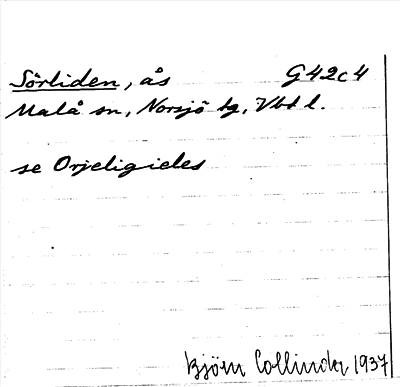 Sörliden, ås G42c4
Malå sn, Norsjö tg, Vbtl.
se Orjeligieles
Björn Collinder 1937